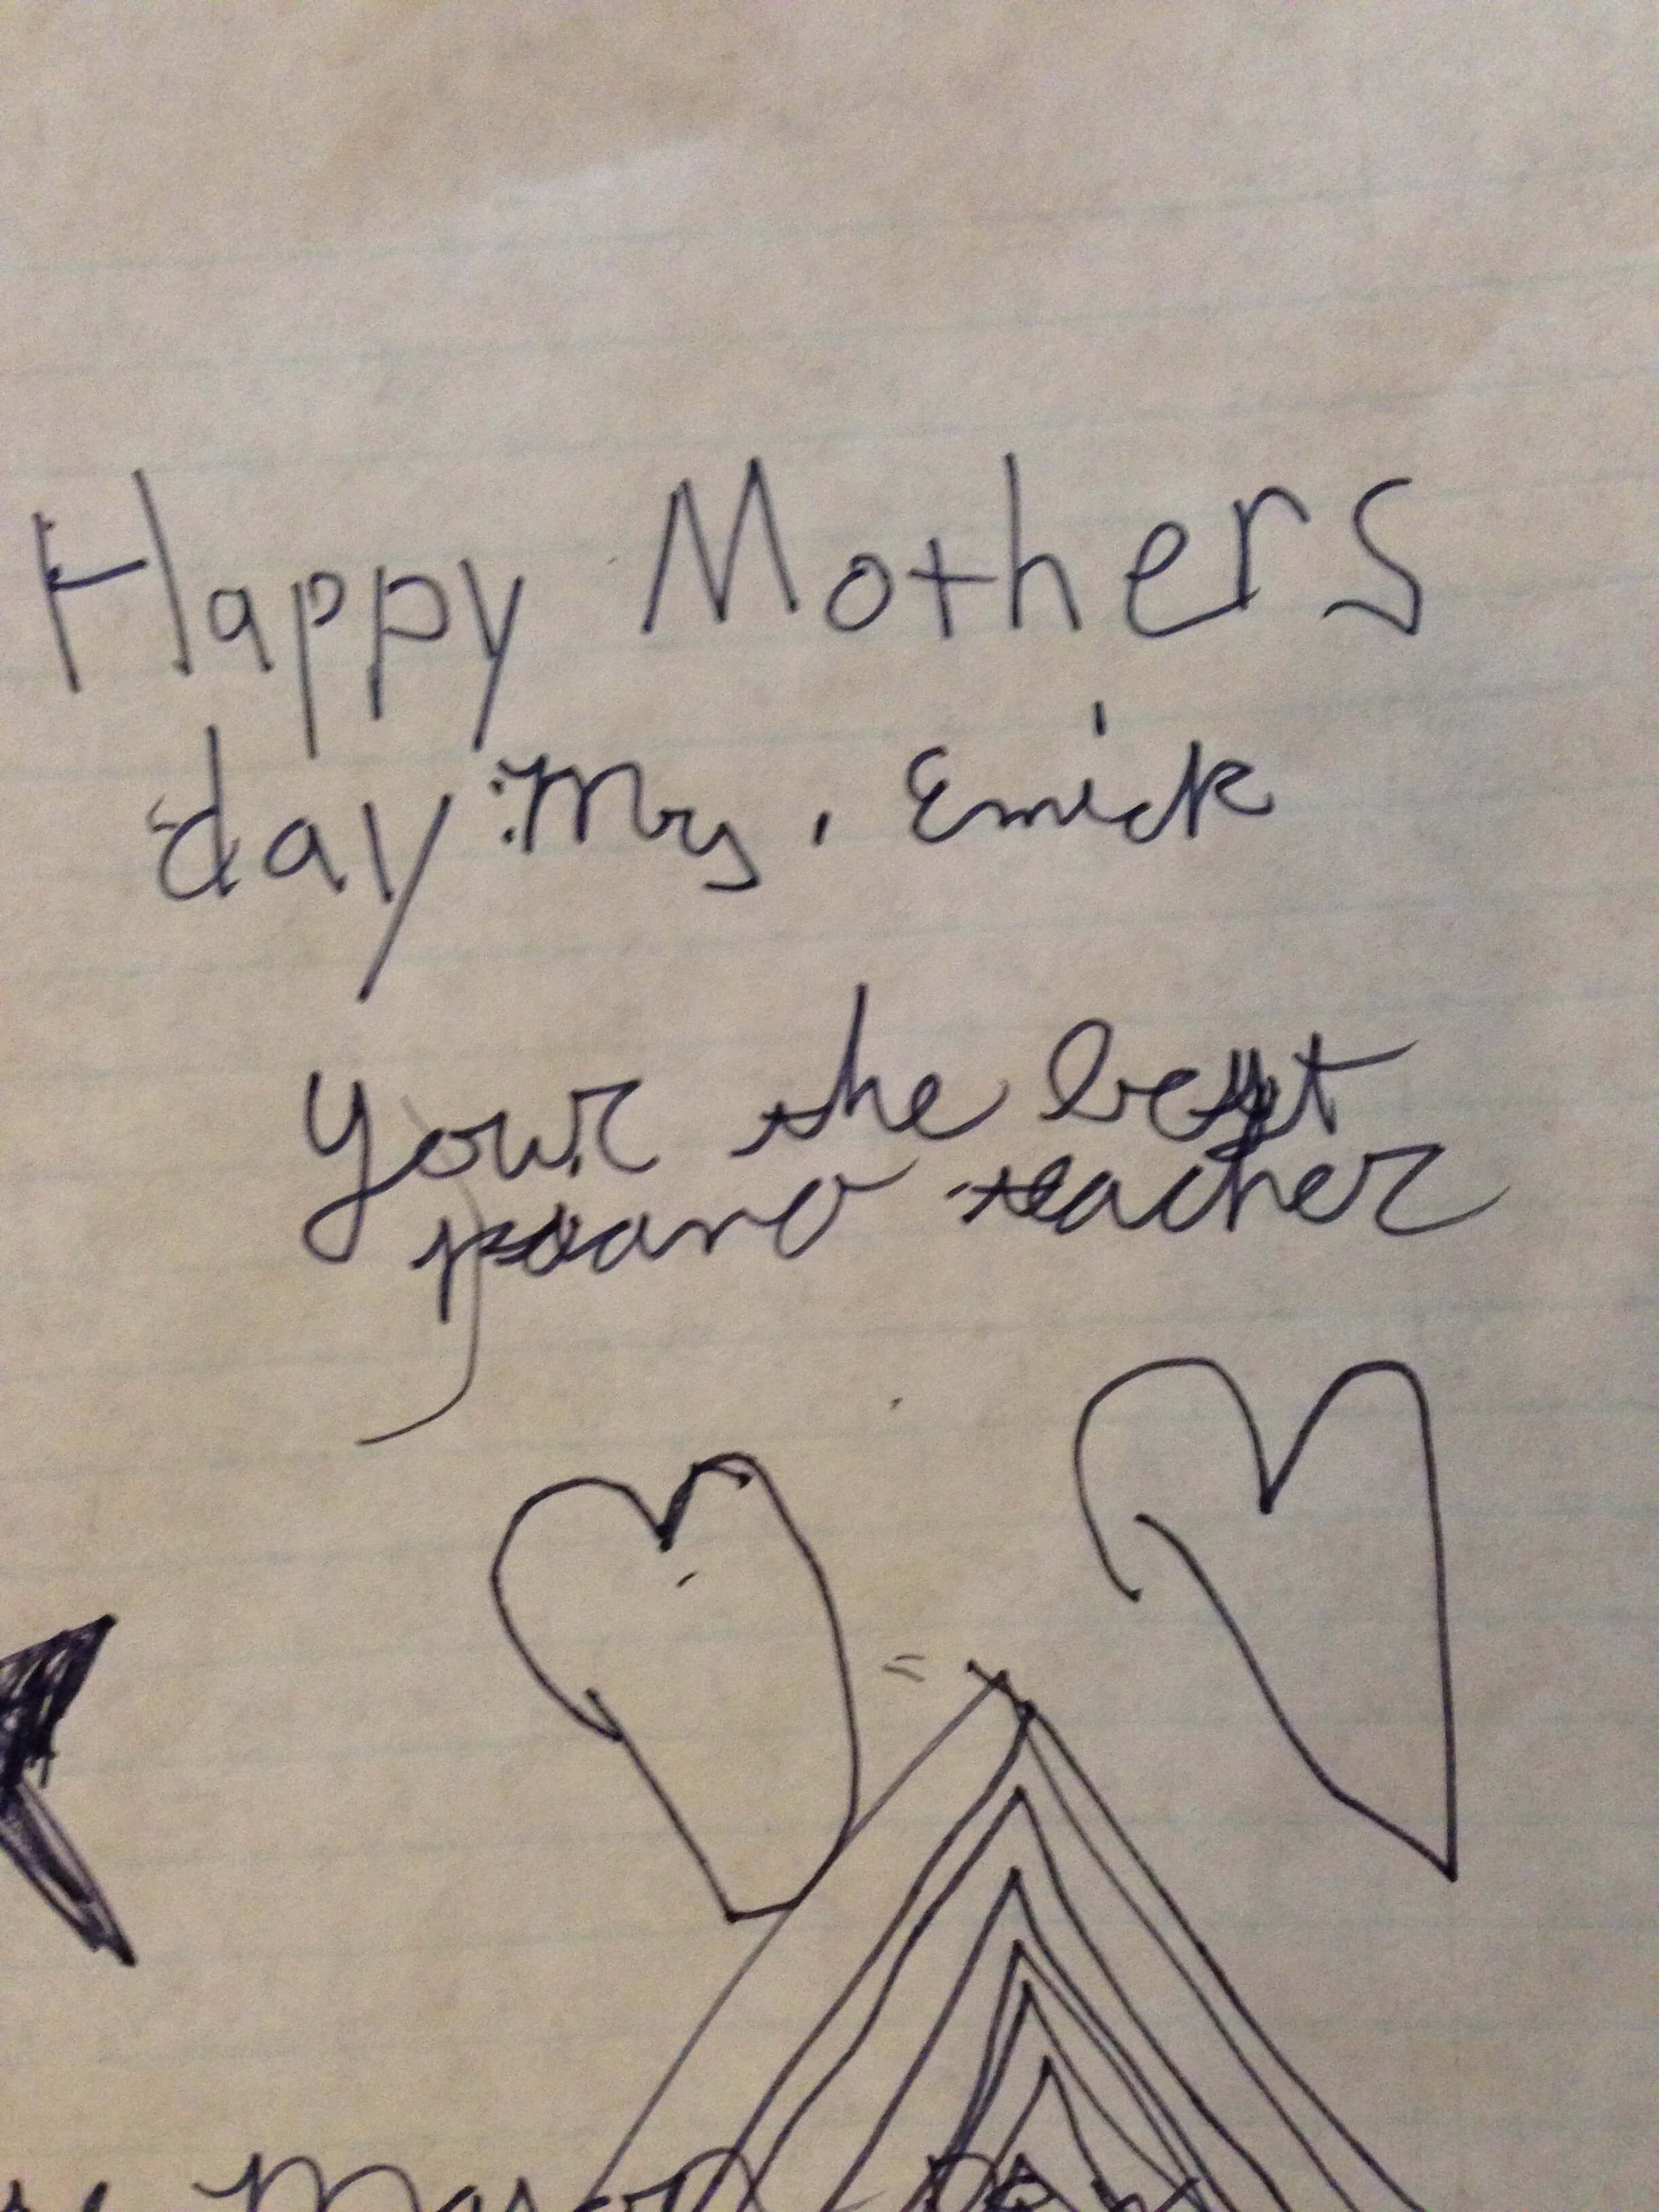 Happy Mothers
day Mrs. Emick
your the best
piano teacher
Mason